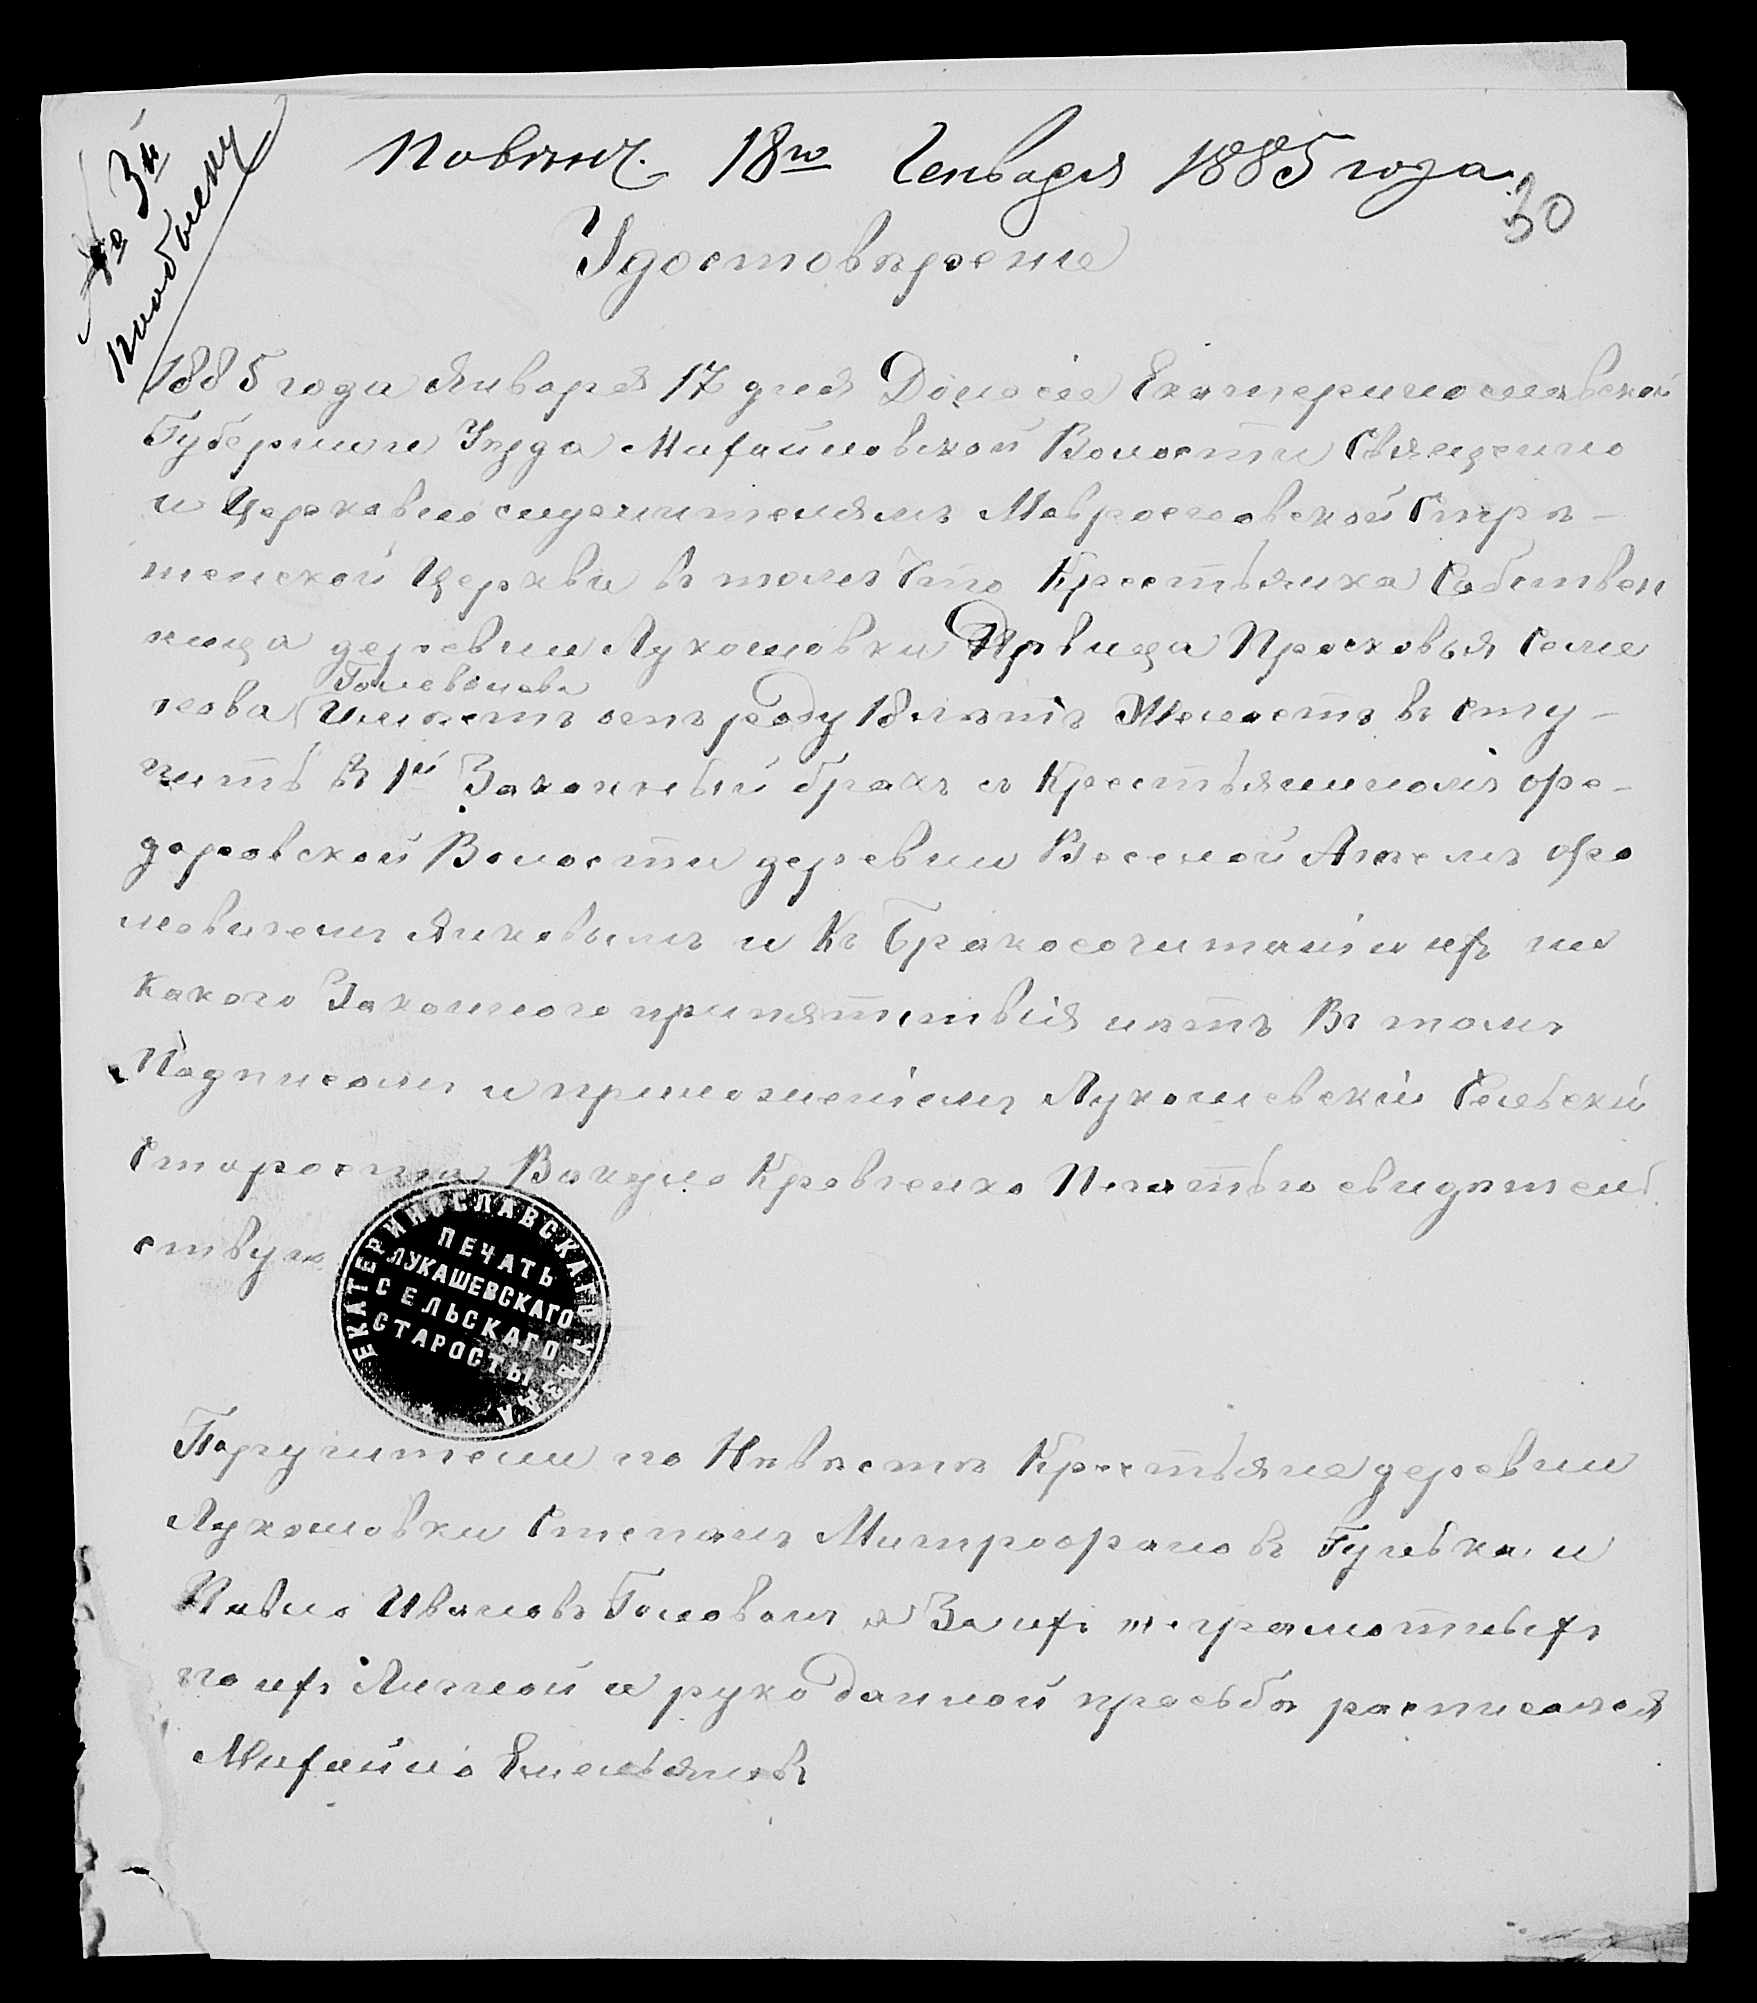 № 3й
по обыску
Повѣнч. 18го Генваря 1885 года
30
Удостовѣрение
1885 года Января 17 дня Дано сіе Екатеринославской
Губернии Уѣзда Михайловской Волости Священно
и Церковно служителямъ Мавро Стрѣ-
тенской Церкви въ томъ Что Крестьянка Собствен
ница деревни Лукашовки Дѣвица Просковья Семе
Голеванева
нова Имѣетъ отъ роду 18 лѣтъ Желаетъ въ сту-
пить в 1й Законный бракъ съ Крестьяниномъ Фе-
доровской Волости деревни Веселой
мовичемъ Янковымъ и Къ Бракосочитанию ихъ ни
какого Законного припятствія нѣтъ Въ томъ
Подписомъ и приложеніемъ Лукашевскій Сельскій
Староста Вакула Кравченко Печатью свидѣтель
ствую
ЕКАТЕРИНОСЛАВСКАГО УѢЗДА
ПЕЧАТЬ
ЛУКАШЕВСКАГО
СЕЛЬСКАГО
СТАРОСТЫ
Поручители по Невѣстѣ Крестьяне деревни
Лукашовки Степанъ Митрофановъ Гулька и
Павло Ивановъ Головань а За ихъ неграмотныхъ
по ихъ Личной и рукоданной просьбѣ росписался
Михайло Емельяновъ